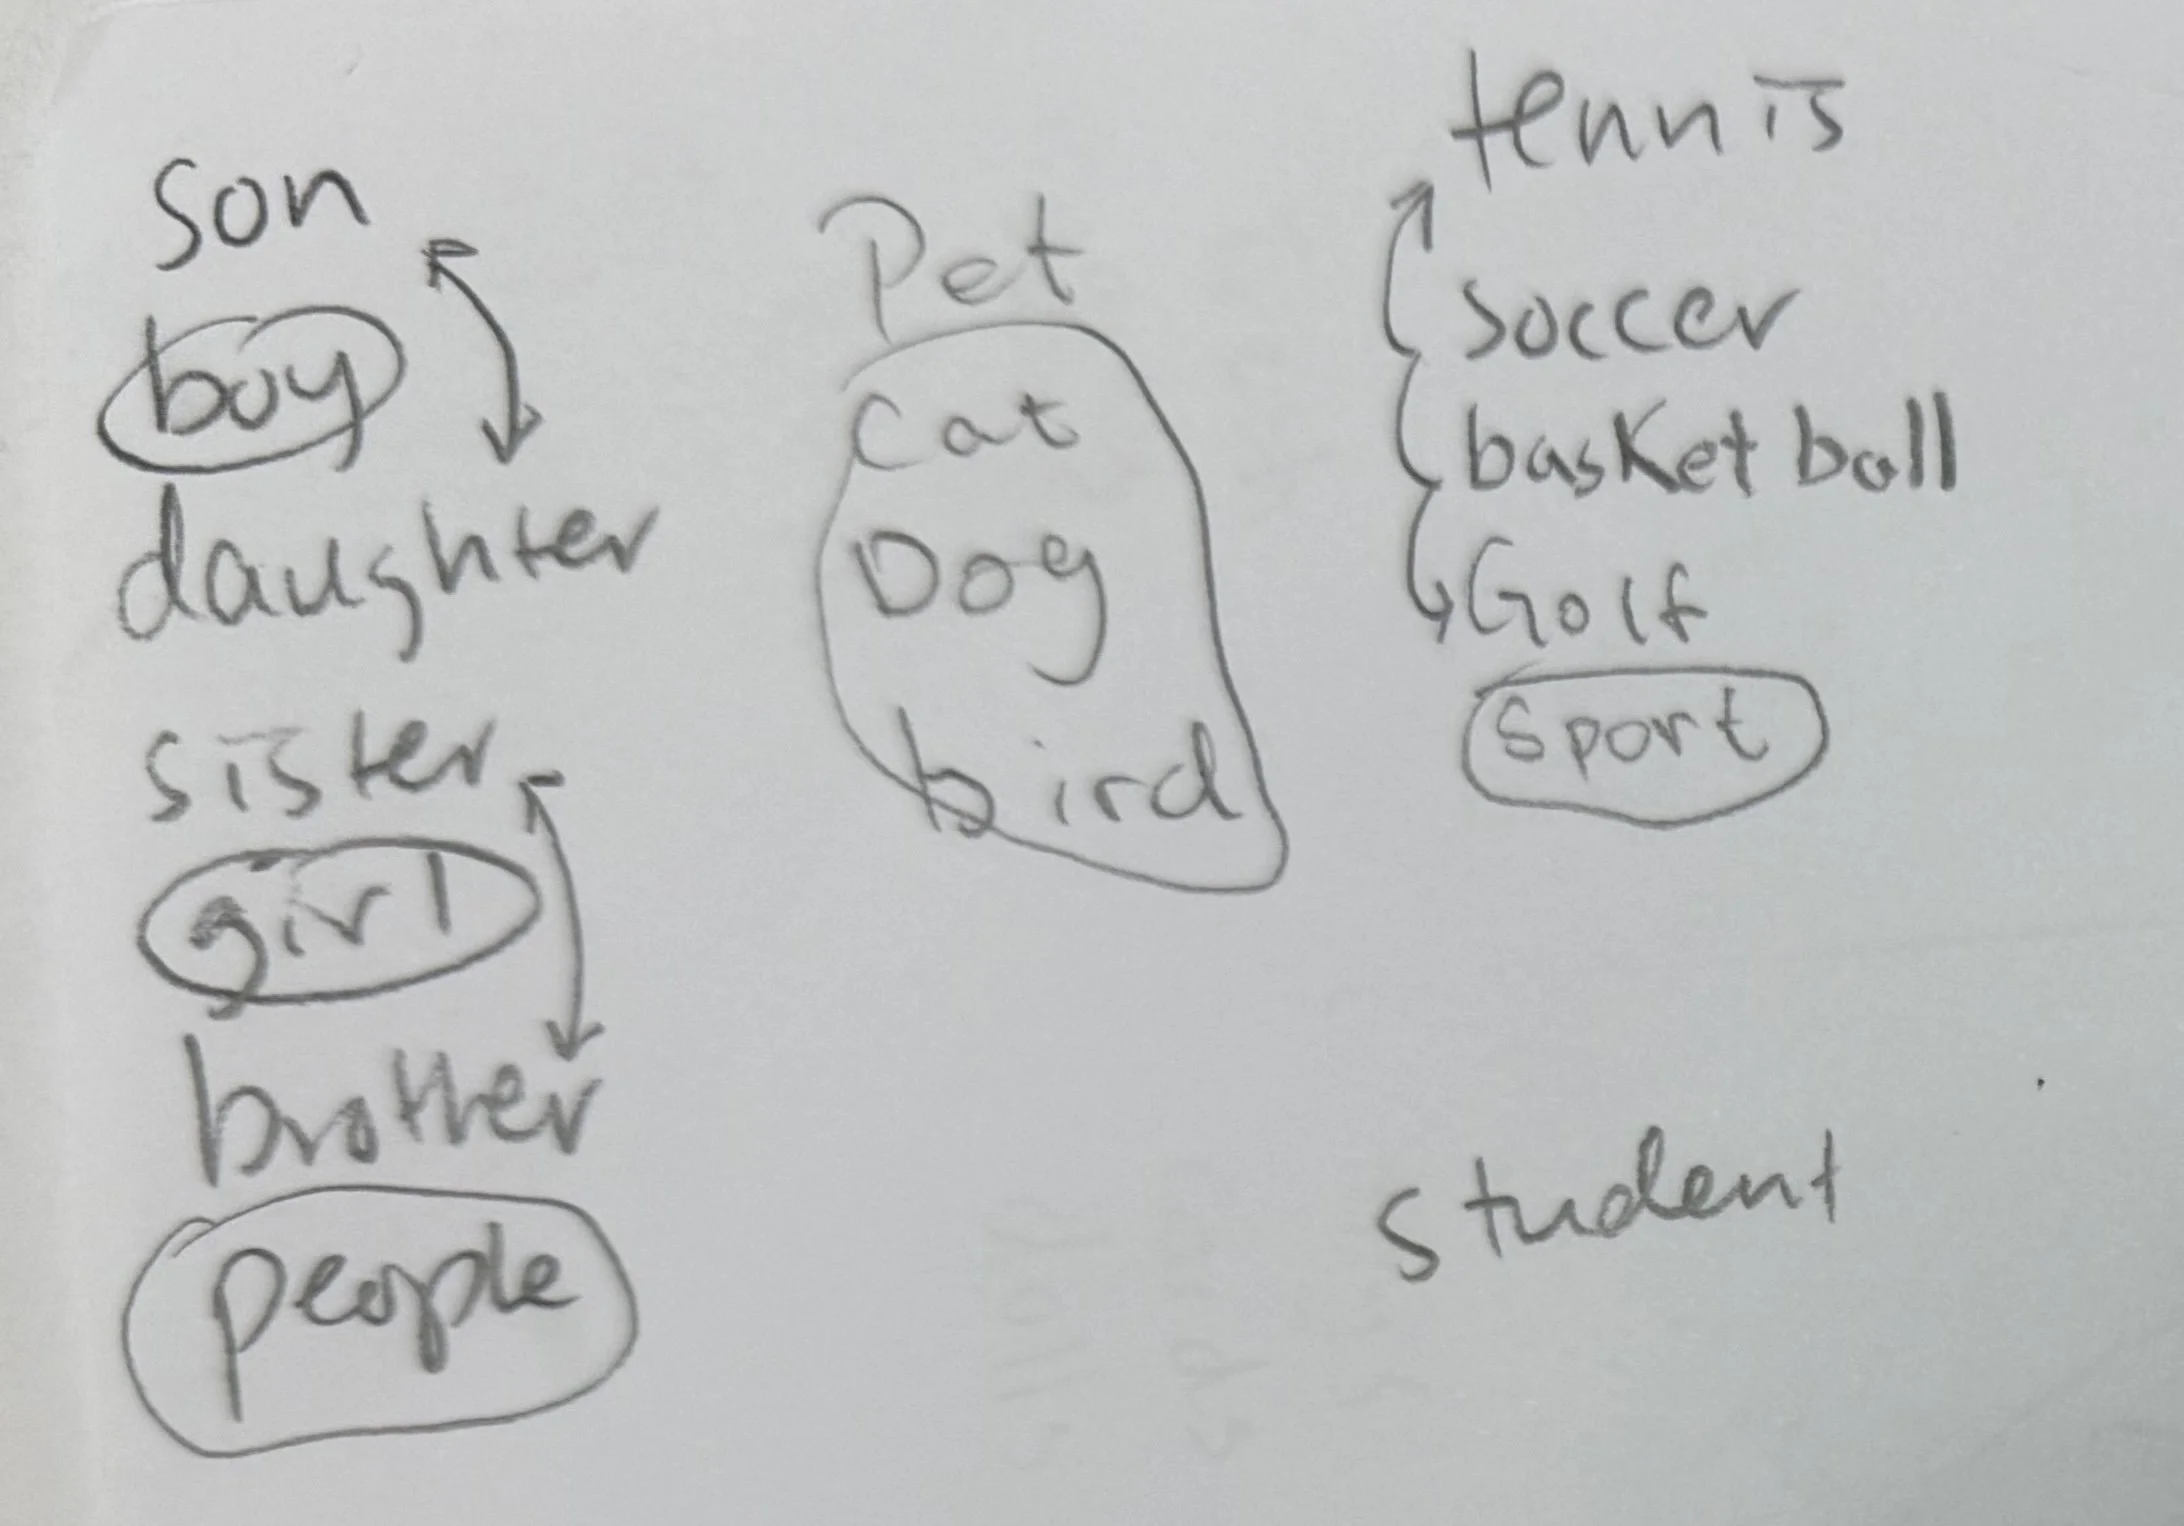 son
boy
daughter
sister
girl
brother
people
Pet
cat
Dog
bird
tennis
soccer
basketball
Golf
sport
student